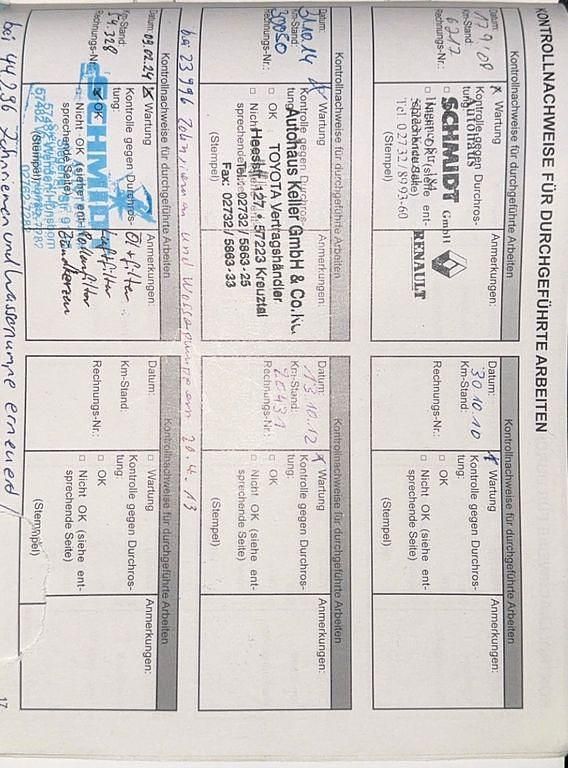 KONTROLLNACHWEISE FÜR DURCHGEFÜHRTE ARBEITEN
Kontrollnachweise für durchgeführte Arbeiten
Datum: 17.9.08
Km-Stand: 6717
Rechnungs-Nr.:
Wartung
Kontrolle gegen Durchros-
tung:
OK
Nicht OK (siehe ent-
sprechende Seite)
(Stempel)
Autohaus
SCHMIDT GmbH
Tel. 02732/8993-60
RENAULT
Anmerkungen:
Kontrollnachweise für durchgeführte Arbeiten
Datum: 30.10.10
Km-Stand:
Rechnungs-Nr.:
Wartung
Kontrolle gegen Durchros-
tung:
OK
Nicht OK (siehe ent-
sprechende Seite)
(Stempel)
Anmerkungen:
Kontrollnachweise für durchgeführte Arbeiten
Km-Stand:
Rechnungs-Nr.:
Wartung
Kontrolle gegen Durchros-
tung:
OK
Nicht OK (siehe ent-
sprechende Seite)
(Stempel)
Autohaus Keller GmbH & Co. KG
TOYOTA Vertragshändler
57223 Kreuztal
Tel.: 02732 / 5863-25
Fax: 02732 / 5863-33
Anmerkungen:
Kontrollnachweise für durchgeführte Arbeiten
Datum: 13.10.12
Km-Stand:
Rechnungs-Nr.:
Wartung
Kontrolle gegen Durchros-
tung:
OK
Nicht OK (siehe ent-
sprechende Seite)
(Stempel)
Anmerkungen:
bei 23996 Zahnriemen und Wasserpumpe am 20.4.13
Kontrollnachweise für durchgeführte Arbeiten
Datum: 09.02.24
Km-Stand: 54.328
Rechnungs-Nr.:
Wartung
Kontrolle gegen Durchros-
tung:
OK
Nicht OK (siehe ent-
sprechende Seite)
(Stempel)
57482 Wenden-Hünsborn
Anmerkungen:
Öl + filter
Luftfilter
Pollenfilter
Zündkerzen
Kontrollnachweise für durchgeführte Arbeiten
Datum:
Km-Stand:
Rechnungs-Nr.:
Wartung
Kontrolle gegen Durchros-
tung:
OK
Nicht OK (siehe ent-
sprechende Seite)
(Stempel)
Anmerkungen:
bei 44296 Zahnriemen und Wasserpumpe erneuert
17